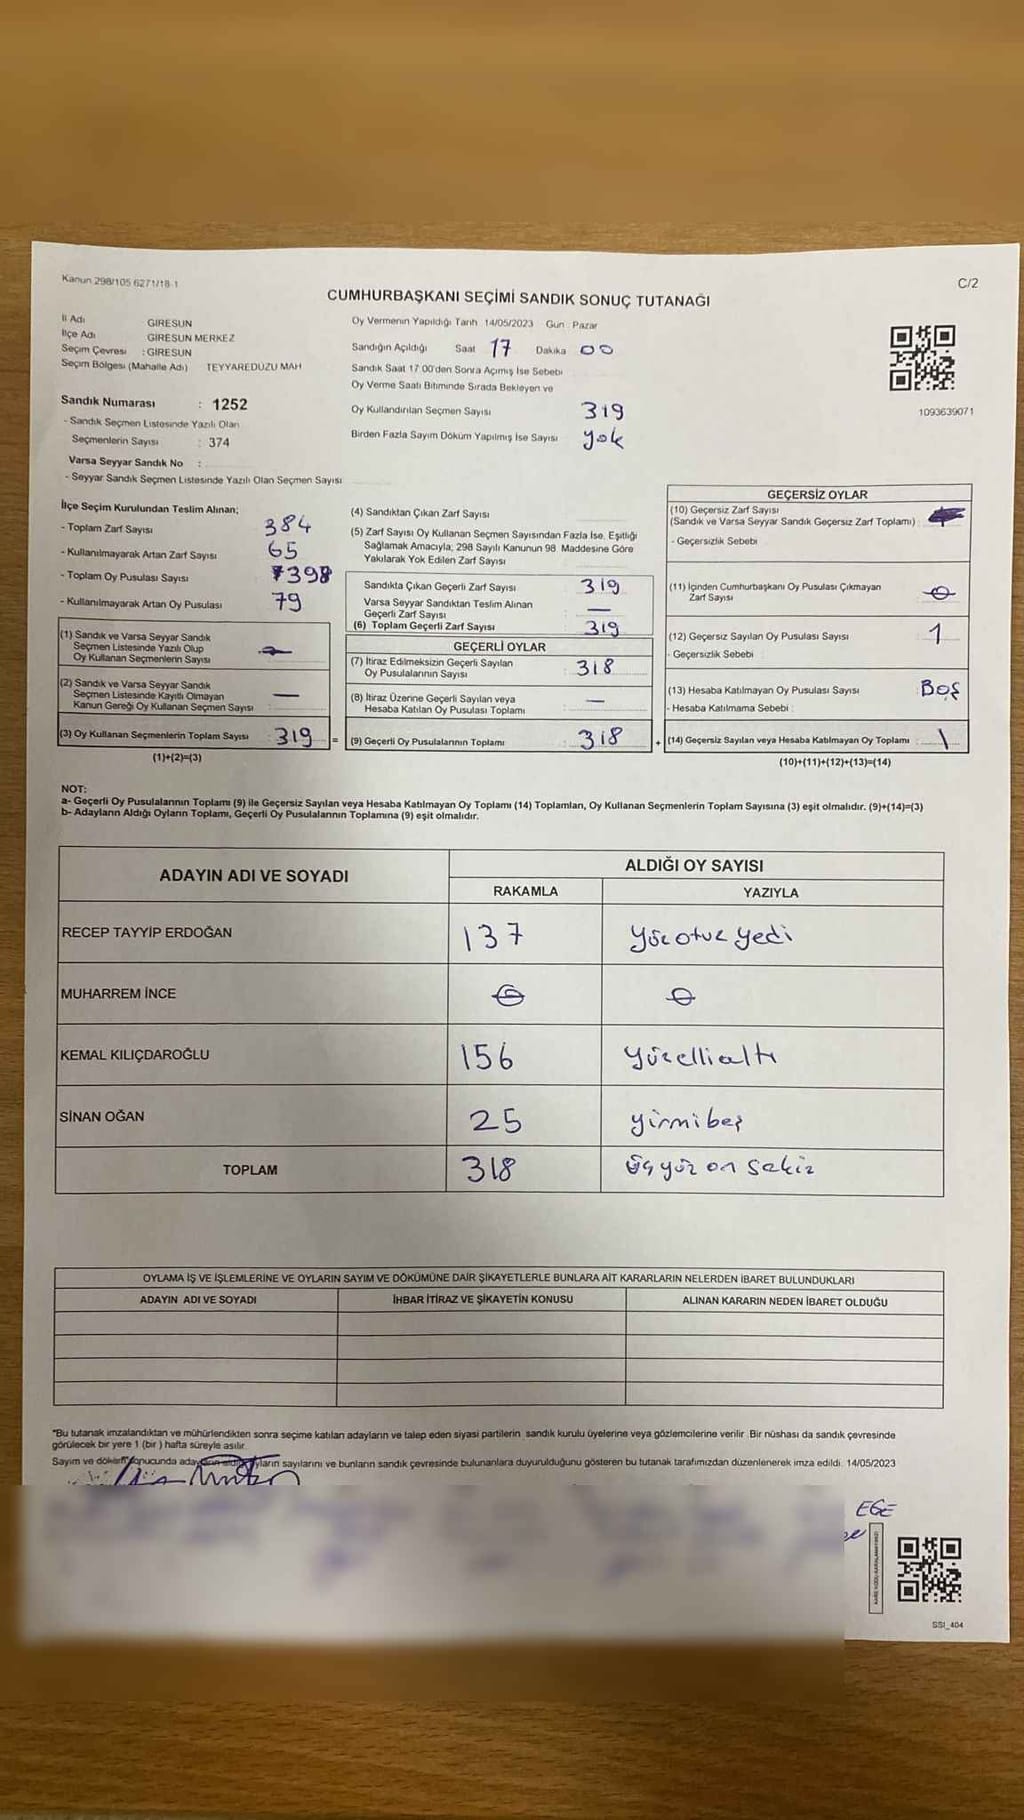 Kanun 298/105 6271/18-1
C/2
CUMHURBAŞKANI SEÇİMİ SANDIK SONUÇ TUTANAĞI
İl Adı GİRESUN
İlçe Adı GİRESUN MERKEZ
Seçim Çevresi : GİRESUN
Seçim Bölgesi (Mahalle Adı) TEYYAREDÜZÜ MAH
Sandık Numarası : 1252
- Sandık Seçmen Listesinde Yazılı Olan
Seçmenlerin Sayısı : 374
Varsa Seyyar Sandık No :
- Seyyar Sandık Seçmen Listesinde Yazılı Olan Seçmen Sayısı
Oy Vermenin Yapıldığı Tarih 14/05/2023 Gün : Pazar
Sandığın Açıldığı Saat 17 Dakika 00
Sandık Saat 17 00'den Sonra Açımış İse Sebebi
Oy Verme Saati Bitiminde Sırada Bekleyen ve
Oy Kullandırılan Seçmen Sayısı 319
Birden Fazla Sayım Döküm Yapılmış İse Sayısı yok
1093639071
İlçe Seçim Kurulundan Teslim Alınan;
- Toplam Zarf Sayısı 384
- Kullanılmayarak Artan Zarf Sayısı 65
- Toplam Oy Pusulası Sayısı 398
- Kullanılmayarak Artan Oy Pusulası 79
(1) Sandık ve Varsa Seyyar Sandık
Seçmen Listesinde Yazılı Olup
Oy Kullanan Seçmenlerin Sayısı
(2) Sandık ve Varsa Seyyar Sandık
Seçmen Listesinde Kayıtlı Olmayan
Kanun Gereği Oy Kullanan Seçmen Sayısı —
(3) Oy Kullanan Seçmenlerin Toplam Sayısı 319 =
(1)+(2)=(3)
(4) Sandıktan Çıkan Zarf Sayısı
(5) Zarf Sayısı Oy Kullanan Seçmen Sayısından Fazla İse, Eşitliği
Sağlamak Amacıyla; 298 Sayılı Kanunun 98 Maddesine Göre
Yakılarak Yok Edilen Zarf Sayısı
Sandıkta Çıkan Geçerli Zarf Sayısı 319
Varsa Seyyar Sandıktan Teslim Alınan
Geçerli Zarf Sayısı —
(6) Toplam Geçerli Zarf Sayısı 319
GEÇERLİ OYLAR
(7) İtiraz Edilmeksizin Geçerli Sayılan
Oy Pusulalarının Sayısı 318
(8) İtiraz Üzerine Geçerli Sayılan veya
Hesaba Katılan Oy Pusulası Toplamı —
(9) Geçerli Oy Pusulalarının Toplamı 318 +
GEÇERSİZ OYLAR
(10) Geçersiz Zarf Sayısı
(Sandık ve Varsa Seyyar Sandık Geçersiz Zarf Toplamı)
- Geçersizlik Sebebi
(11) İçinden Cumhurbaşkanı Oy Pusulası Çıkmayan
Zarf Sayısı 0
(12) Geçersiz Sayılan Oy Pusulası Sayısı 1
- Geçersizlik Sebebi :
(13) Hesaba Katılmayan Oy Pusulası Sayısı Boş
- Hesaba Katılmama Sebebi :
(14) Geçersiz Sayılan veya Hesaba Katılmayan Oy Toplamı 1
(10)+(11)+(12)+(13)=(14)
NOT:
a- Geçerli Oy Pusulalarının Toplamı (9) ile Geçersiz Sayılan veya Hesaba Katılmayan Oy Toplamı (14) Toplamları, Oy Kullanan Seçmenlerin Toplam Sayısına (3) eşit olmalıdır. (9)+(14)=(3)
b- Adayların Aldığı Oyların Toplamı, Geçerli Oy Pusulalarının Toplamına (9) eşit olmalıdır.
ADAYIN ADI VE SOYADI ALDIĞI OY SAYISI
RAKAMLA YAZIYLA
RECEP TAYYİP ERDOĞAN 137 yüz otuz yedi
MUHARREM İNCE 0 0
KEMAL KILIÇDAROĞLU 156 yüzellialtı
SİNAN OĞAN 25 yirmibeş
TOPLAM 318 üçyüz on sekiz
OYLAMA İŞ VE İŞLEMLERİNE VE OYLARIN SAYIM VE DÖKÜMÜNE DAİR ŞİKAYETLERLE BUNLARA AİT KARARLARIN NELERDEN İBARET BULUNDUKLARI
ADAYIN ADI VE SOYADI İHBAR İTİRAZ VE ŞİKAYETİN KONUSU ALINAN KARARIN NEDEN İBARET OLDUĞU
*Bu tutanak imzalandıktan ve mühürlendikten sonra seçime katılan adayların ve talep eden siyasi partilerin sandık kurulu üyelerine veya gözlemcilerine verilir. Bir nüshası da sandık çevresinde
görülecek bir yere 1 (bir ) hafta süreyle asılır.
Sayım ve döküm sonucunda adayların aldığı oyların sayılarını ve bunların sandık çevresinde bulunanlara duyurulduğunu gösteren bu tutanak tarafımızdan düzenlenerek imza edildi. 14/05/2023
EGE
SSI_404